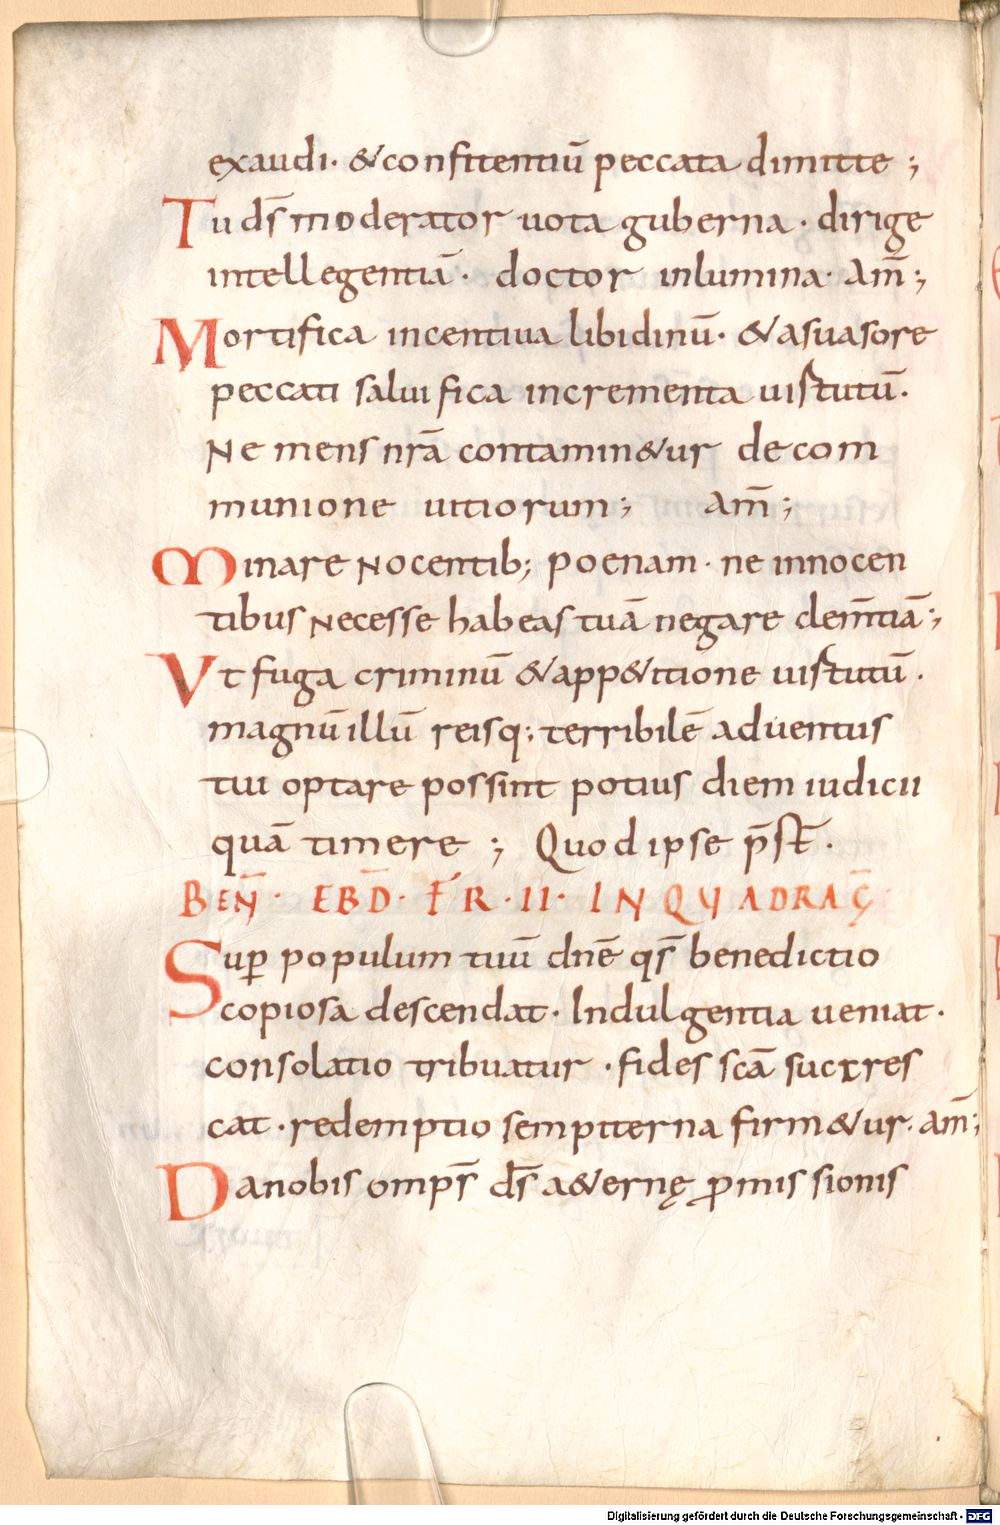 exaudi· & confitentiū peccata dimitte ;
Tu d̄s moderator uota guberna · dirige
intellegentiā · doctor inlumina · Am̄ ;
Mortifica incentiua libidinū · & a suasore
peccati saluifica incrementa uirtutū ·
Ne mens nr̄a contamin&ur de com
munione uitiorum ; am̄ ;
Minare Nocentib; poenam · ne innocen
tibus Necesse habeas tuā negare clem̄tiā ;
Vt fuga criminū & app&itione uirtutū ·
magnū illū reisq; terribilē aduentus
tui optare possint potius diem iudicii
quā timere ; Quod ipse p̄st̄ ·
BEN̄ · EBD̄ · F̄R · II · IN QUADRAḠ
Suꝑ populum tuū dn̄e qs̄ benedictio
copiosa descendat · Indulgentia ueniat ·
consolatio tribuatur · fides sc̄a succres
cat · redemptio sempiterna firm&ur · am̄ ;
Da nobis omps̄ d̄s a&ernę ꝓmissionis
Digitalisierung gefördert durch die Deutsche Forschungsgemeinschaft - DFG